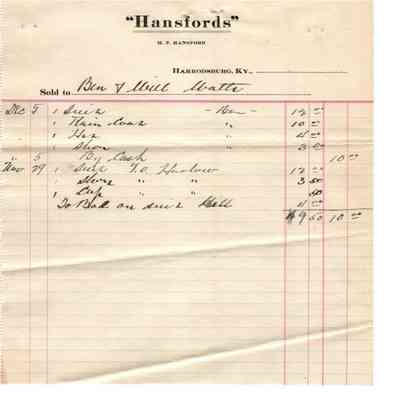 "Hansfords"
H. P. HANSFORD
HARRODSBURG, KY.,
Sold to Ben & Will Watts
Dec 5 1 Suit - Ben - 12 00
1 Rain Coat " 10 00
1 Hat " 4 00
1 Shoes " 3 00
" 5 By Cash 10 00
Nov 29 1 Suit T.O. 12 00
1 Shoes " " 3 50
1 Cap " " 50
To Bal on suit Will 4 00
49 00 10 00